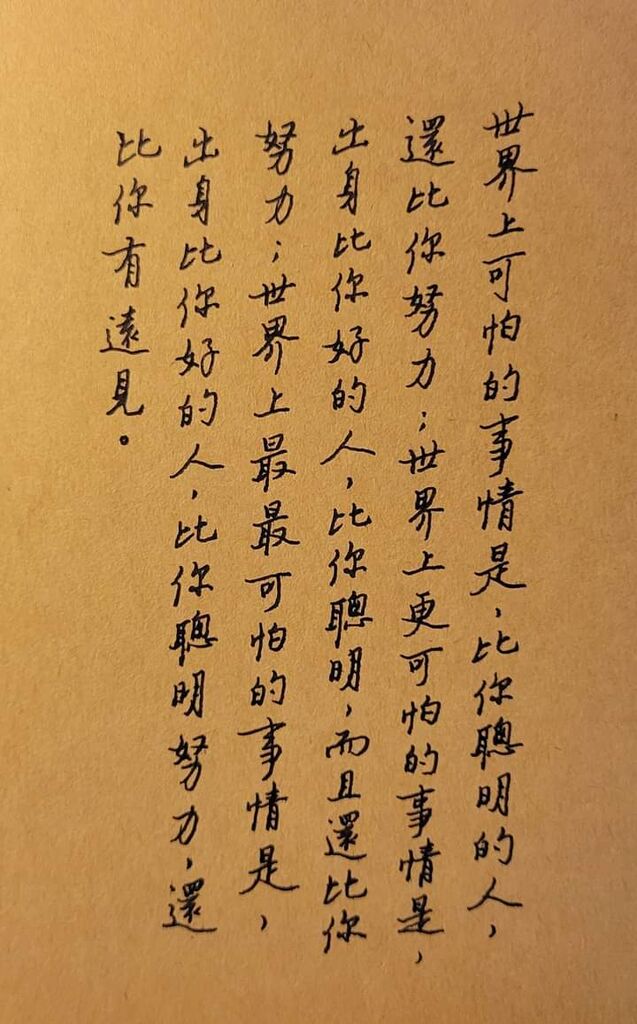 世界上可怕的事情是，比你聰明的人，
還比你努力；世界上更可怕的事情是，
出身比你好的人，比你聰明，而且還比你
努力；世界上最最可怕的事情是，
出身比你好的人，比你聰明努力，還
比你有遠見。